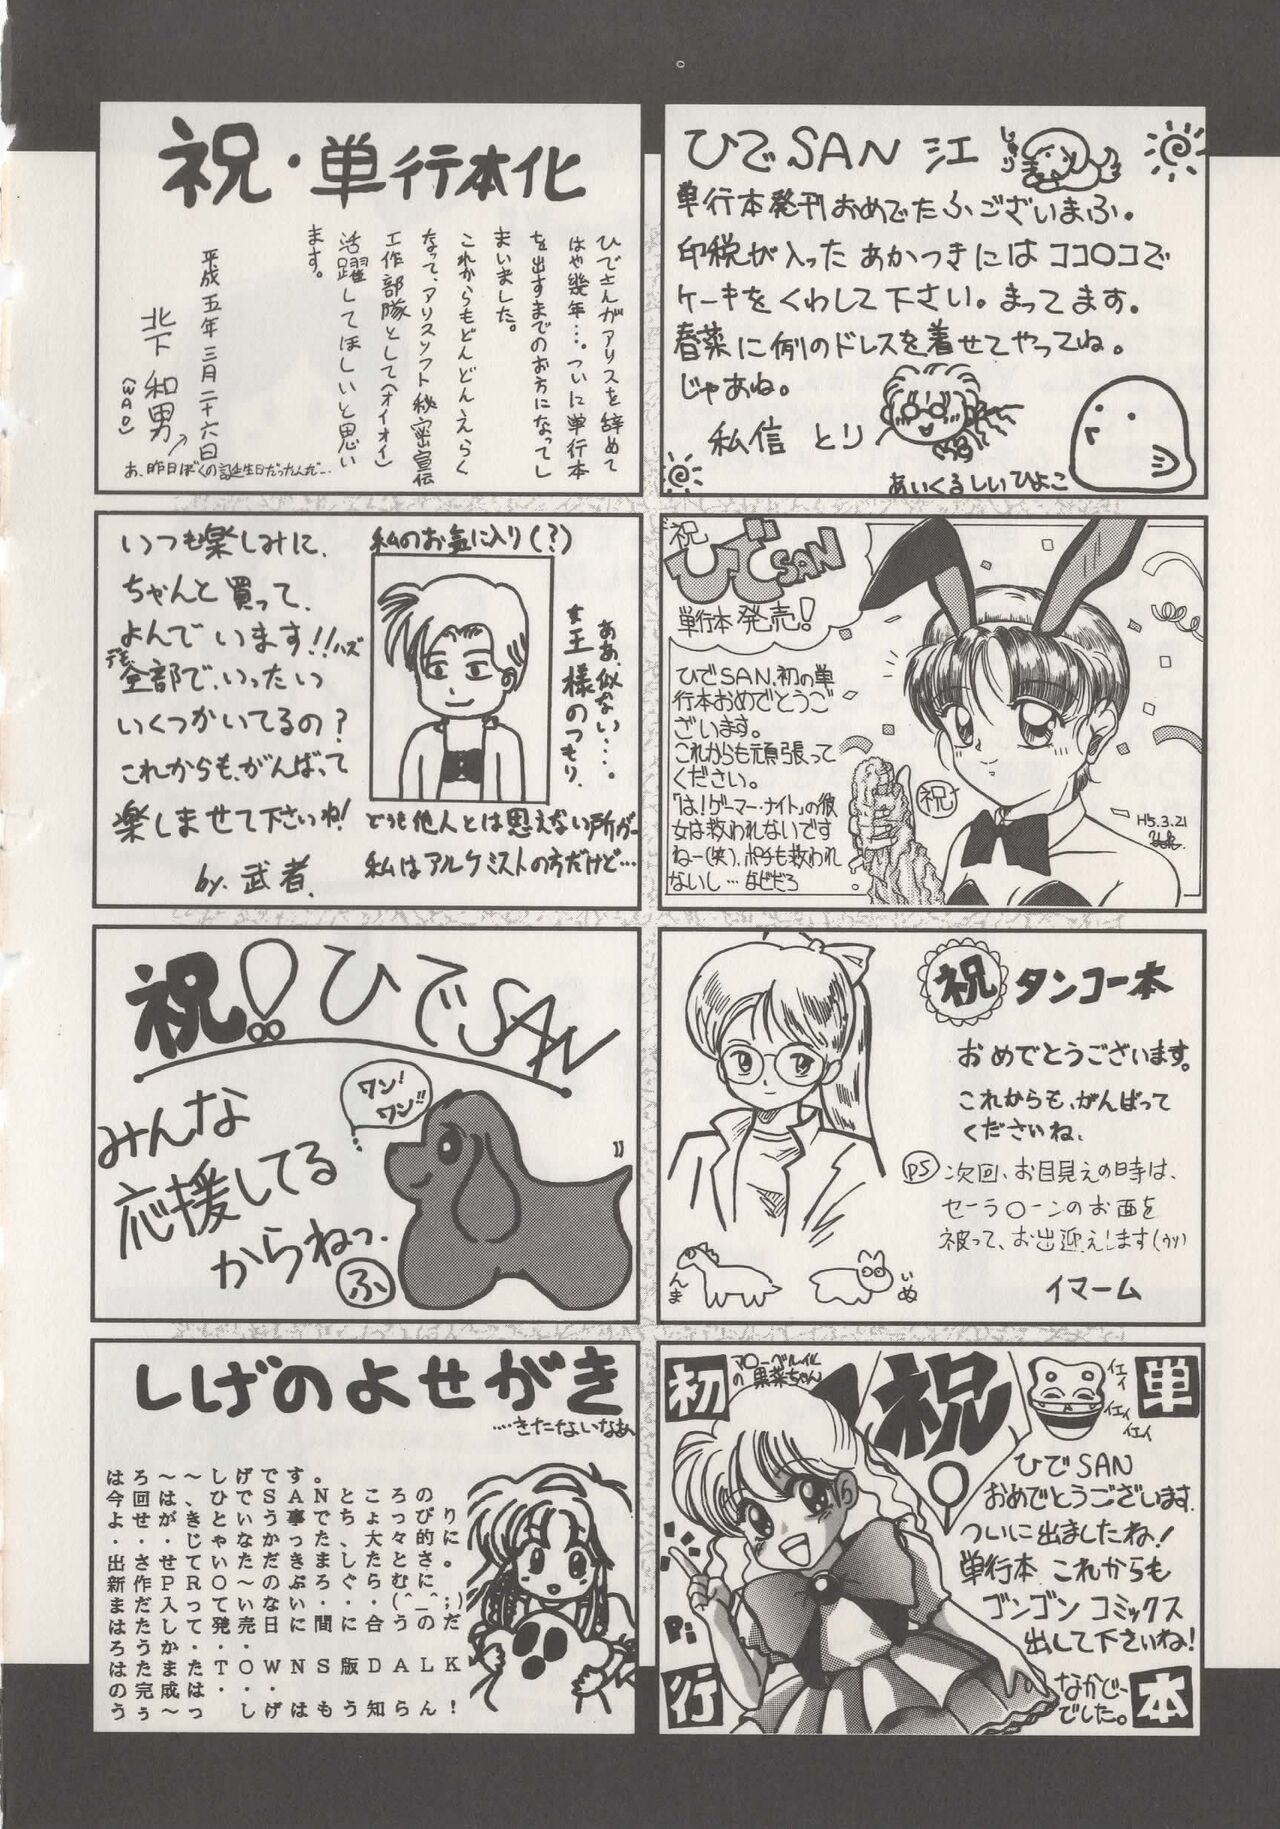 ひでSAN 江
しゅり
単行本発刊おめでたふございまふ。
印税が入ったあかつきにはココ〇コで
ケーキをくわして下さい。まってます。
春菜に例のドレスを着せてやってね。
じゃあね。
私信 とり
あいくるしいひよこ
祝・単行本化
ひでさんがアリスを辞めて
はや幾年…。ついに単行本
を出すまでのお方になってし
まいました。
これからもどんどんえらく
なって、アリスソフト秘密宣伝
工作部隊として(オイオイ)
活躍してほしいと思い
ます。
平成五年三月二十六日
北下 和男
(WAO)
お、昨日ぼくの誕生日だったんだ…
祝
ひでSAN
単行本発売!
ひでSAN、初の単
行本おめでとうご
ざいます。
これからも頑張って
ください。
「は!ゲーマー・ナイト」の彼
女は救われないです
ねー(笑)、ポチも救われ
ないし…などだろ
祝
H5.3.21
いつも楽しみに、
ちゃんと買って、
よんでいます!!ハズ
デモ全部で、いったい
いくつかいてるの?
これからも、がんばって
楽しませて下さいね!
by. 武者.
私のお気に入り(?)
ああ、似ない…。
女王様のつもり.
どうも他人とは思えない所が…
私はアルケミストの方だけど…
祝 タンコー本
おめでとうございます。
これからも、がんばって
くださいね、
PS 次回、お目見えの時は、
セーラ〇ーンのお面を
被って、お出迎えします(ウソ)
イマーム
んま
いぬ
祝!ひでSAN
ワン!
ワン!!
みんな
応援してる
からねっ.
ふ
初
単
行
本
祝
マ〇ーベルイル
の 果菜ちゃん
イエイ
イエイ
イエイ
ひでSAN
おめでとうございます.
ついに出ましたね!
単行本 これからも
ゴンゴン コミックス
出して下さいね!
なかじー
でした。
Pi
しげのよせがき
……きたないなぁ
はろ〜〜しげです。
今回は、ひでSANところの
よせがきということでちょっぴり